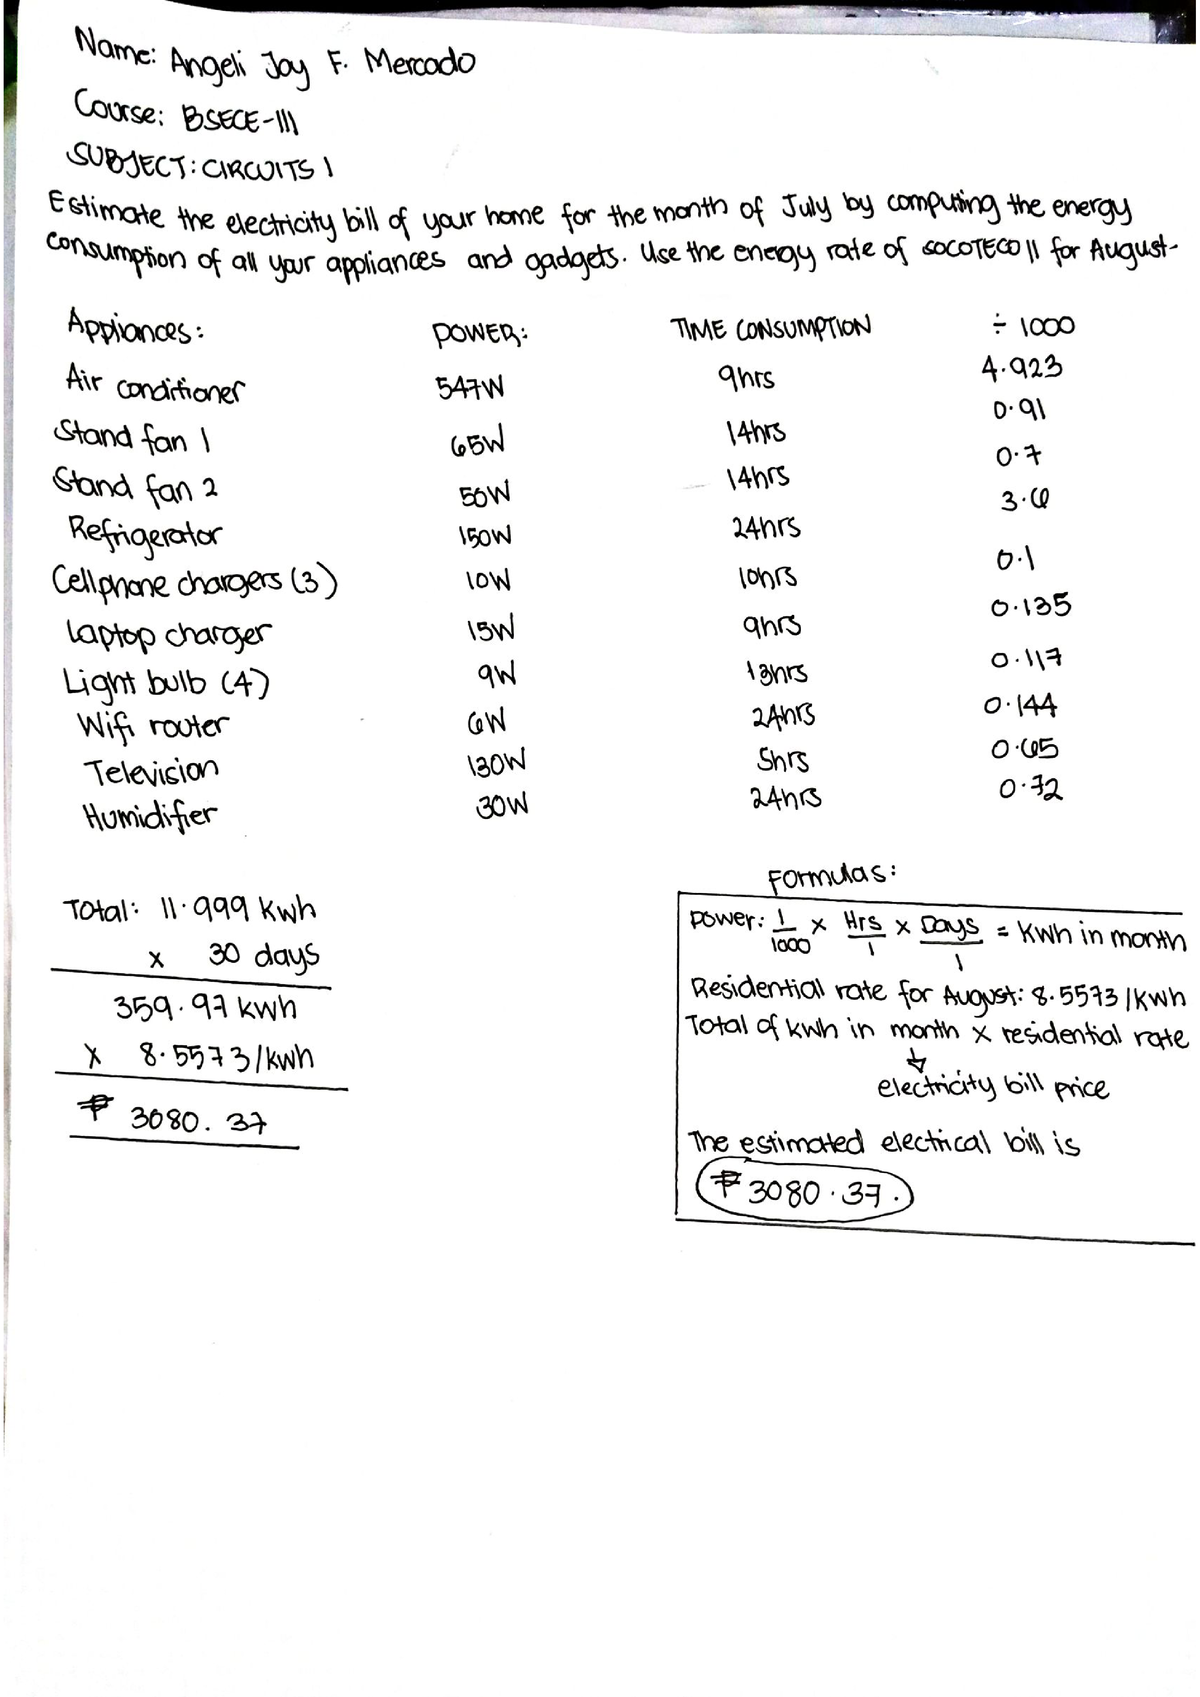 Name: Angeli Joy F. Mercado
Course: BSECE-III
SUBJECT: CIRCUITS 1
Estimate the electricity bill of your home for the month of July by computing the energy
consumption of all your appliances and gadgets. Use the energy rate of SOCOTECO II for August-
Appliances: POWER: TIME CONSUMPTION ÷ 1000
Air conditioner 547W 9hrs 4.923
Stand fan 1 65W 14hrs 0.91
Stand fan 2 50W 14hrs 0.7
Refrigerator 150W 24hrs 3.6
Cellphone chargers (3) 10W 10hrs 0.1
Laptop charger 15W 9hrs 0.135
Light bulb (4) 9W 13hrs 0.117
Wifi router 6W 24hrs 0.144
Television 130W 5hrs 0.65
Humidifier 30W 24hrs 0.72
Total: 11.999 kwh
x 30 days
359.97 kwh
x 8.5573/kwh
₱ 3080.37
Formulas:
Power: 1/1000 x Hrs/1 x Days/1 = Kwh in month
Residential rate for August: 8.5573/kwh
Total of kwh in month x residential rate
↓
electricity bill price
The estimated electrical bill is
₱ 3080.37.